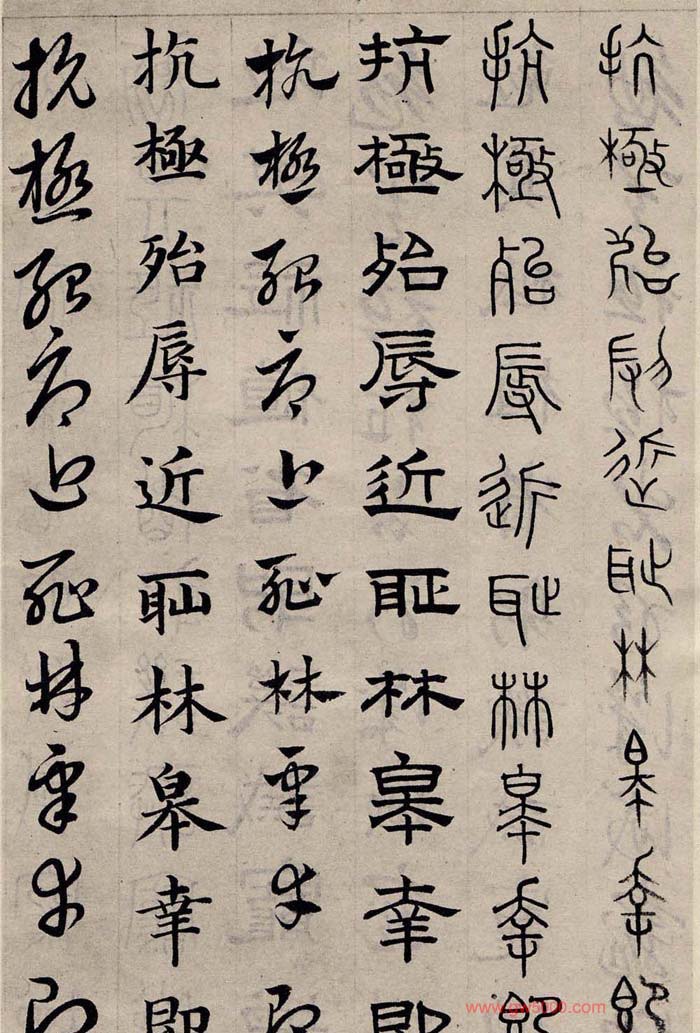 抗極殆辱近恥林皋幸即
抗極殆辱近恥林皋幸即
抗極殆辱近恥林皋幸即
抗極殆辱近恥林皋幸即
抗極殆辱近耻林皋幸即
抗極殆辱近恥林皋幸即